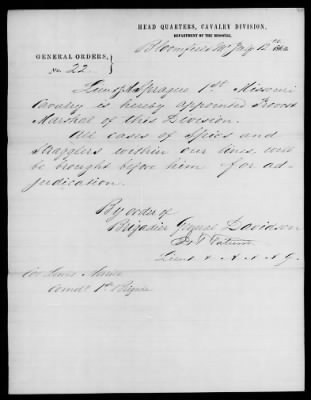 HEAD QUARTERS, CAVALRY DIVISION,
DEPARTMENT OF THE MISSOURI,
Bloomfield Mo July 12th 1863
GENERAL ORDERS,
No. 22.
Sprague 1st Missouri
Cavalry is hereby appointed Provost
Marshal of this Division.
All cases of Spies and
Stragglers within our lines, will
be brought before him for ad-
judication.
By order of
Brigadier General Davidson
Lieut & A. A. A. G.
Comdt 1st Brigade